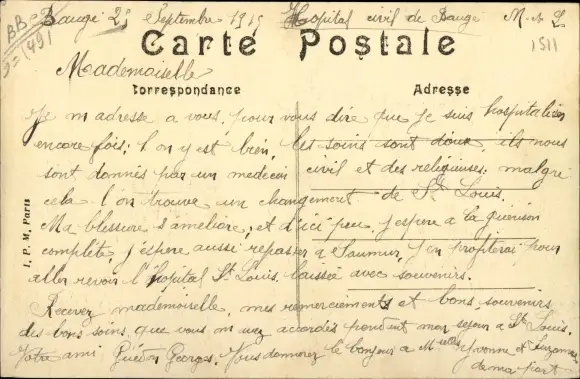 Baugé 25 Septembre 1915 Hopital civil de Bauge M. & L.
1511
Carte Postale
Mademoiselle
Correspondance Adresse
Je m adresse a vous, pour vous dire que je suis hospitaliser
encore fois; l on y est bien, les soins sont doux, ils nous
sont donnés par un medecin civil et des religieuses; malgré
cela l on trouve un changement de St Louis.
Ma blessure s'améliore, et d'ici peu, j'espere a la guerison
complète j'éspere aussi repasser a Saumur, j'en profiterai pour
aller revoir l'hopital St Louis. laissée avec souvenirs.
Recevez mademoiselle, mes remerciements et bons souvenirs
des bons soins que vous m avez accordés pendant mon séjour a St Louis.
Votre ami Guédon Georges. Vous donnerez le bonjour a Melles Yvonne et Suzanne
de ma part
I. P. M. Paris